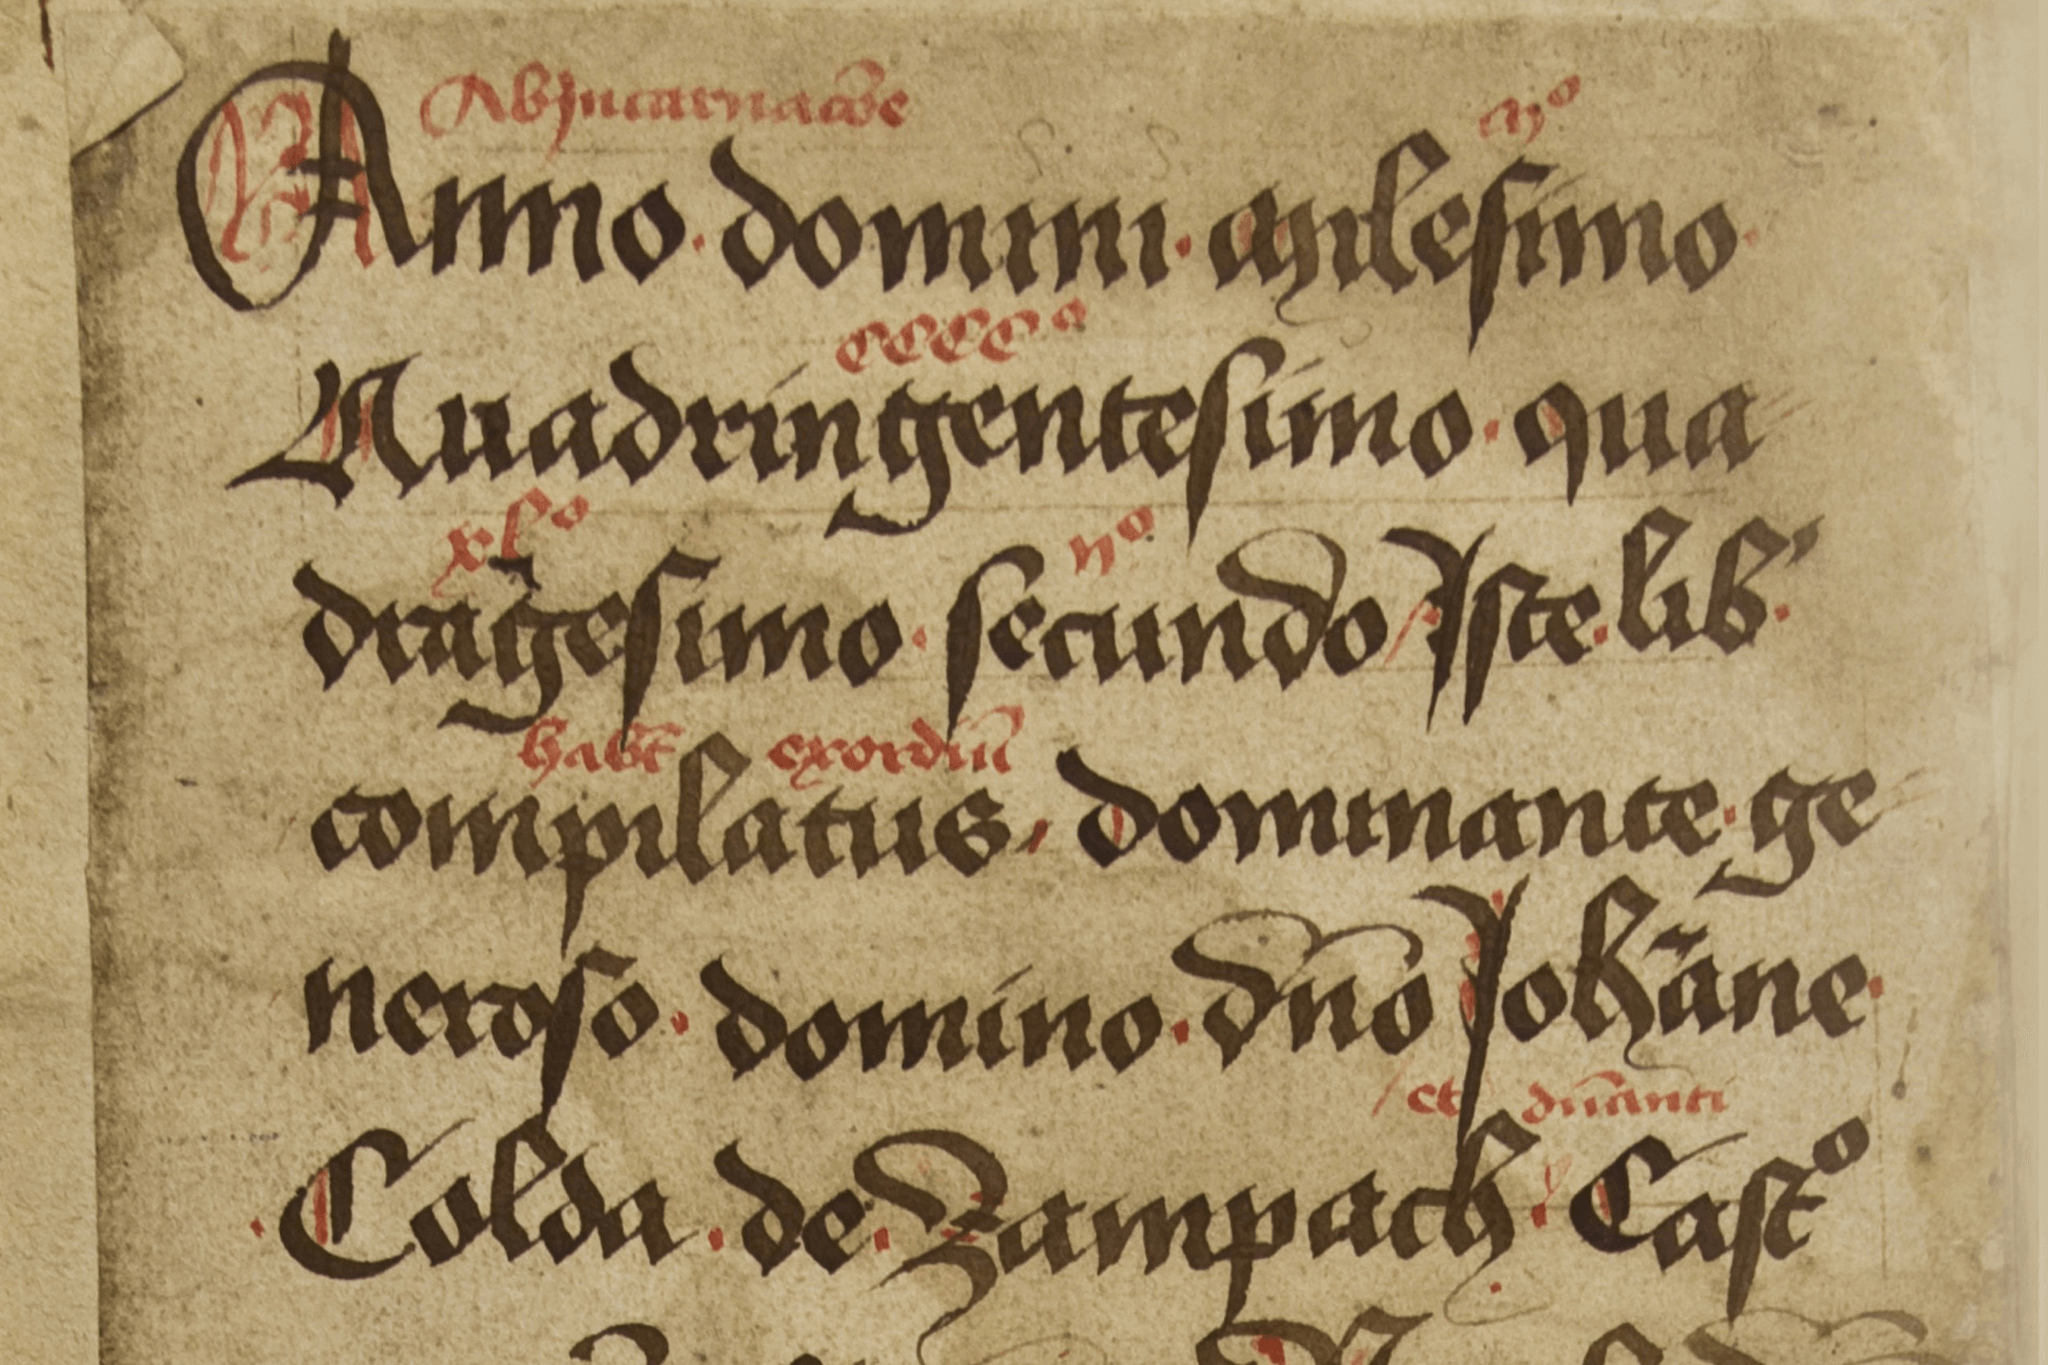 Ab Incarnac̄ōe mo
Anno domini milesimo
cccco
Quadringentesimo qua
xlo ijo
dragesimo secundo Iste lib'
hab̄t exordiū
compilatus dominante ge
neroso domino dn̄o Johāne
et dn̄anti
Colda de Zampach Casto